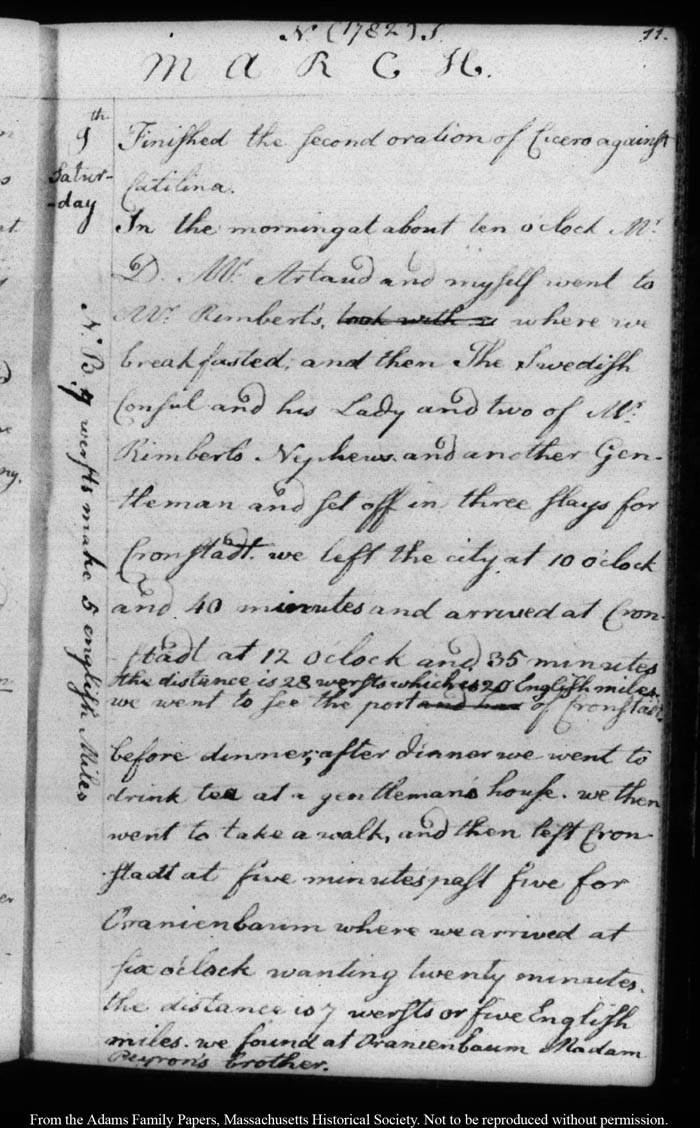 N. (1782) S. 11.
M A R C H.
9th
Satur-
-day
Finiſhed the ſecond oration of Cicero againſt
Catilina.
In the morning at about ten o'clock Mr.
D. Mr. Artaud and myſelf went to
Mr. Rimberts, took with us where we
breakfasted; and then The Swediſh
Conſul and his Lady and two of Mr.
Rimberts Nephews and another Gen-
tleman and ſet off in three ſlays for
Cronſtadt. we left the city at 10 o'clock
and 40 minutes and arrived at Cron-
ſtadt at 12 o'clock and 35 minutes
the distance is 28 werſts which is 20 Engliſh miles.
we went to ſee the port and of Cronſtadt
before dinner, after dinner we went to
drink tea at a gentleman's houſe. we then
went to take a walk, and then left Cron-
ſtadt at five minutes paſt five for
Oranienbaum where we arrived at
ſix o'clock wanting twenty minutes.
the distance is 7 werſts or five Engliſh
miles. we found at Oranienbaum Madam
Peyron's brother.
N. B. 7 werſts make 5 engliſh Miles
From the Adams Family Papers, Massachusetts Historical Society. Not to be reproduced without permission.